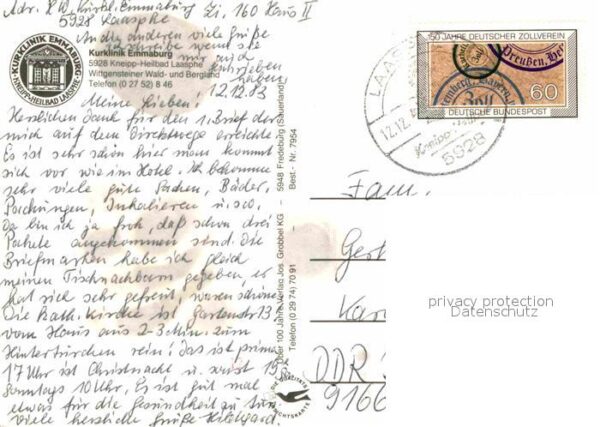 Adr. KW. Kurkl. Emmaburg Zi. 160 Haus II
5928 Laasphe
An die anderen viele Grüße
schreibe wenn sie
mir auch
geschrieben
haben.
KURKLINIK EMMABURG
KNEIPP-HEILBAD LAASPHE
Kurklinik Emmaburg
5928 Kneipp-Heilbad Laasphe
Wittgensteiner Wald- und Bergland
Telefon (0 27 52) 8 46
12.12.83
Meine Lieben!
Herzlichen Dank für den 1. Brief der
mich auf dem Direktwege erreichte
Es ist sehr schön hier man kommt
sich vor wie im Hotel. Ich bekomme
sehr viele gute Sachen, Bäder,
Packungen, Inhalieren u.s.o.
Da bin ich ja froh, daß schon drei
Pakete angekommen sind. Die
Briefmarken habe ich gleich
meinen Tischnachbarn gegeben, er
hat sich sehr gefreut, waren schöne
Die Kath. Kirche ist Gartenstr. 13
vom Haus aus 2-3 Min. zum
Hintertürchen rein! das ist prima
17 Uhr ist Christnacht u. sonst
Sonntags 10 Uhr. Es ist gut mal
etwas für die Gesundheit zu tun.
Viele herzliche Grüße Hildegard.
Über 100 Jahre Verlag Jos. Grobbel KG - 5948 Fredeburg (Sauerland)
Telefon (0 29 74) 70 91 - Best.-Nr. 7964
150 JAHRE DEUTSCHER ZOLLVEREIN
Preußen, He
Zoll
60
DEUTSCHE BUNDESPOST
LAAS
12.12.
Kneipp
5928
Fam.
Gest
Kar
DDR
9166
privacy protection
Datenschutz